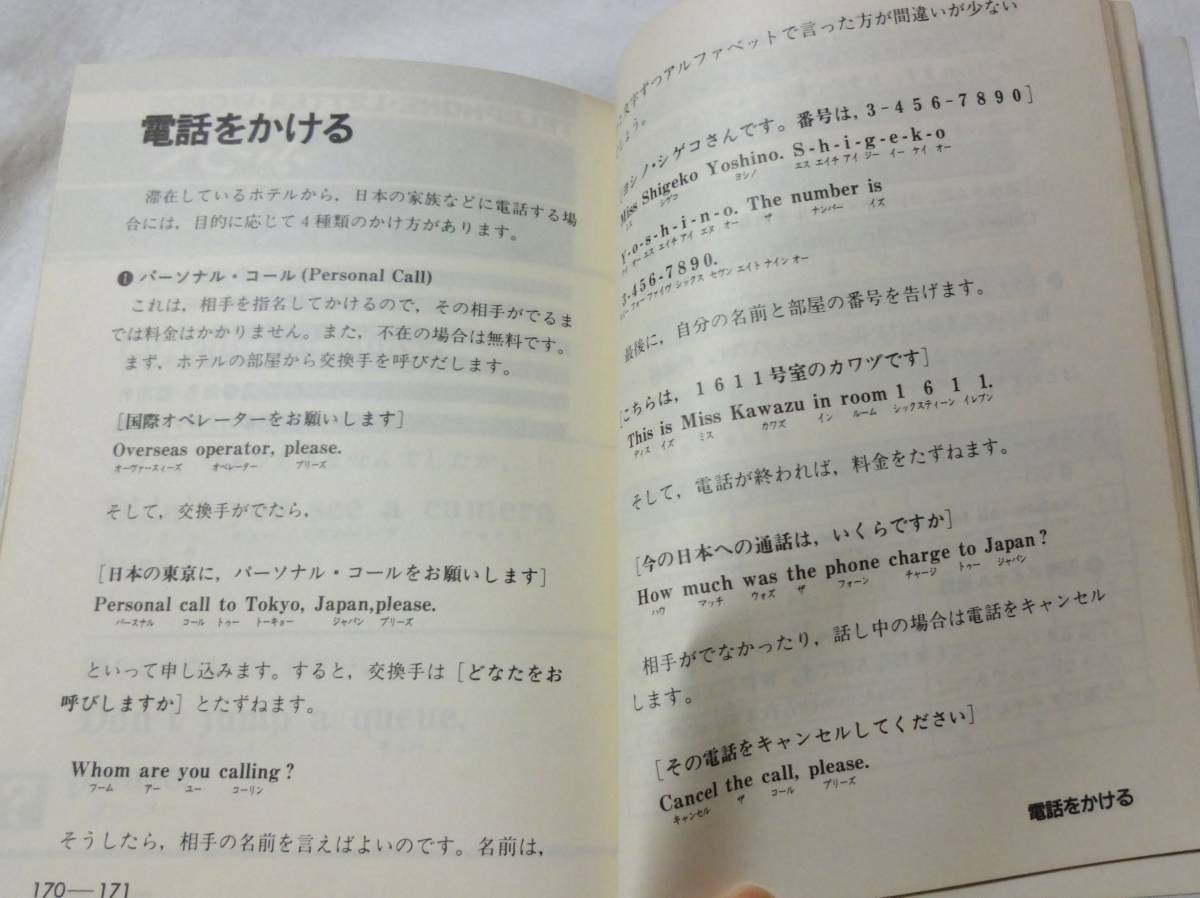 電話をかける
滞在しているホテルから,日本の家族などに電話する場
合には,目的に応じて4種類のかけ方があります。
❶ パーソナル・コール(Personal Call)
これは,相手を指名してかけるので,その相手がでるま
では料金はかかりません。また,不在の場合は無料です。
まず,ホテルの部屋から交換手を呼びだします。
[国際オペレーターをお願いします]
Overseas operator, please.
オーヴァースィーズ オペレーター プリーズ
そして,交換手がでたら,
[日本の東京に,パーソナル・コールをお願いします]
Personal call to Tokyo, Japan,please.
パースナル コール トゥー トーキョー ジャパン プリーズ
といって申し込みます。すると,交換手は[どなたをお
呼びしますか]とたずねます。
Whom are you calling?
フーム アー ユー コーリン
そうしたら,相手の名前を言えばよいのです。名前は,
170—171
文字ずつアルファベットで言った方が間違いが少ない
しょう。
[ヨシノ・シゲコさんです。番号は,3-456-7890]
Miss Shigeko Yoshino. S-h-i-g-e-k-o
ミス シゲコ ヨシノ エス エイチ アイ ジー イー ケイ オー
Y-o-s-h-i-n-o. The number is
ワイ オー エス エイチ アイ エヌ オー ザ ナンバー イズ
3-456-7890.
スリー フォー ファイヴ シックス セヴン エイト ナイン オー
最後に,自分の名前と部屋の番号を告げます。
[こちらは,1611号室のカワヅです]
This is Miss Kawazu in room 1 6 1 1.
ディス イズ ミス カワズ イン ルーム シックスティーン イレブン
そして,電話が終われば,料金をたずねます。
[今の日本への通話は,いくらですか]
How much was the phone charge to Japan?
ハウ マッチ ウォズ ザ フォーン チャージ トゥー ジャパン
相手がでなかったり,話し中の場合は電話をキャンセル
します。
[その電話をキャンセルしてください]
Cancel the call, please.
キャンセル ザ コール プリーズ
電話をかける